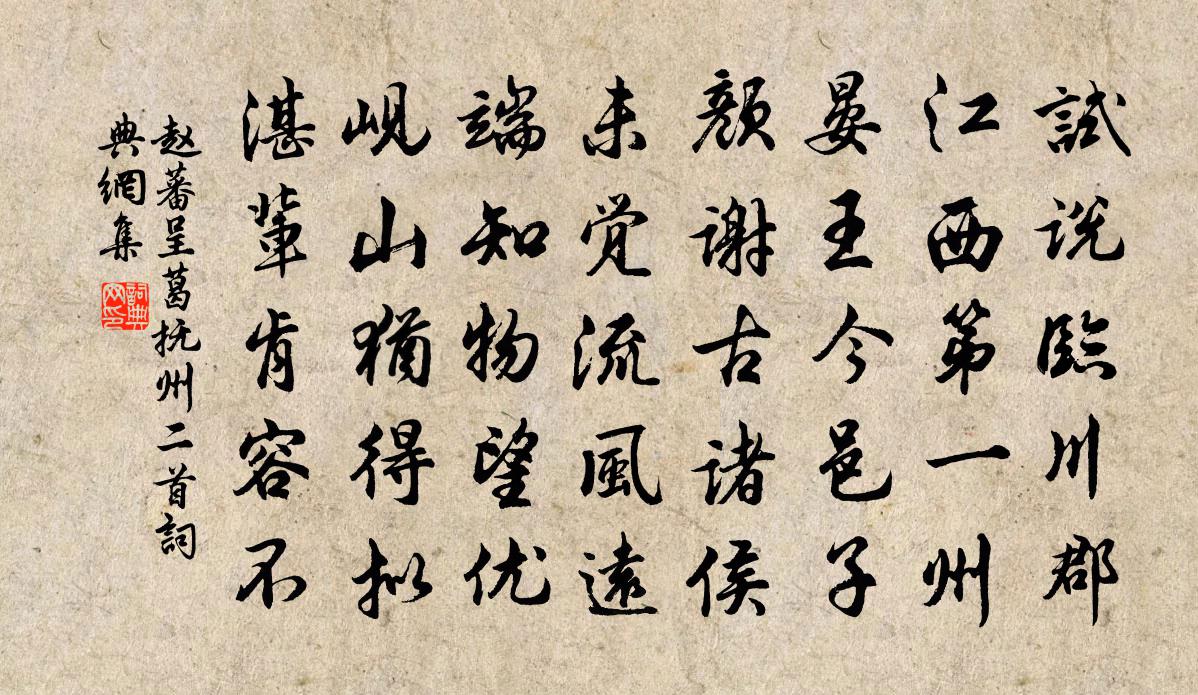 試说臨川郡
江西第一州
晏王今邑子
颜謝古诸侯
未覚流風遠
端知物望优
岘山猶得拟
湛輩肯容不
赵蕃呈葛抚州二首詞
典網集
詞典
网印